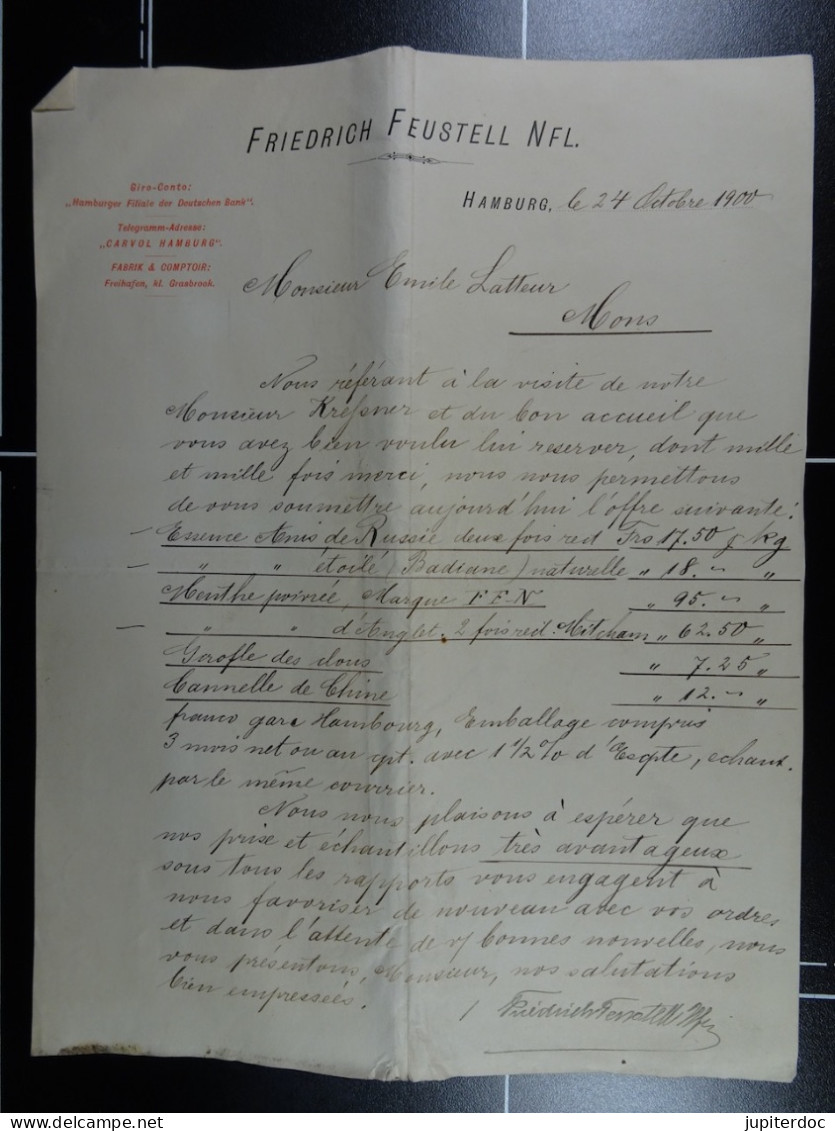 FRIEDRICH FEUSTELL NFL.
Giro-Conto:
„Hamburger Filiale der Deutschen Bank".
Telegramm-Adresse:
„CARVOL HAMBURG".
FABRIK & COMPTOIR:
Freihafen, kl. Grasbrook.
HAMBURG, le 24 Octobre 1900
Monsieur Emile Latteur
Mons
Nous référant à la visite de notre
Monsieur Kreſsner et du bon accueil que
vous avez bien voulu lui reserver, dont mille
et mille fois merci, nous nous permettons
de vous soumettre aujourd'hui l'offre suivante:
— Essence Anis de Russie deux fois red Frs 17.50 p kg
— „ „ étoilé (Badiane) naturelle „ 18.– „
Menthe poivrée, Marque F F N „ 95.– „
— „ „ d'Anglet. 2 fois red. Mitcham „ 62.50 „
Gerofle des clous „ 7.25 „
Cannelle de Chine „ 12.– „
franco gare Hambourg, Emballage compris
3 mois net ou au cpt. avec 1 1/2 % d'Escpte, echant.
par le même courrier.
Nous nous plaisons à espérer que
nos prise et échantillons très avantageux
sous tous les rapports vous engagent à
nous favoriser de nouveau avec vos ordres
et dans l'attente de v/ bonnes nouvelles, nous
vous présentons, Monsieur, nos salutations
bien empressées.
Friedrich Feustell Nfl.
delcampe.net
jupiterdoc